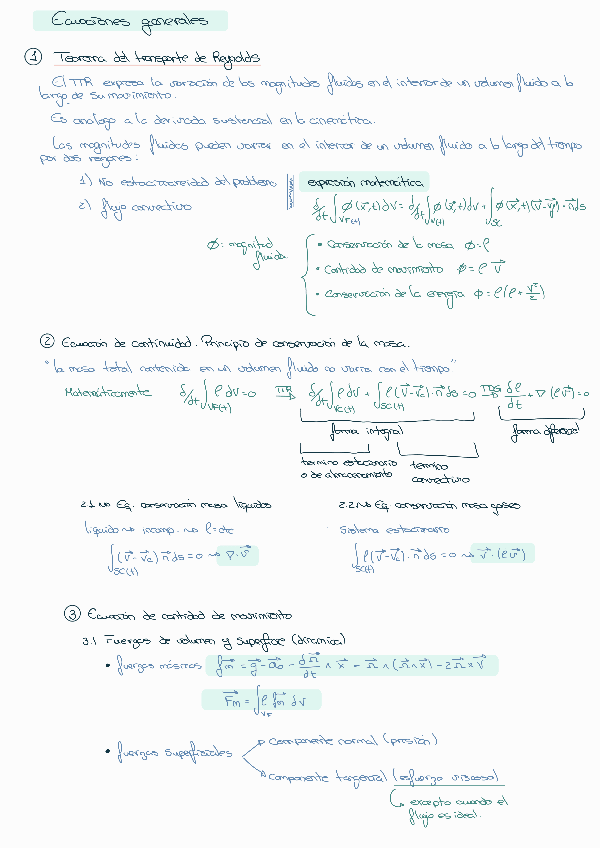 Ecuaciones generales
① Teorema del transporte de Reynolds
El TTR expresa la variación de las magnitudes fluidas en el interior de un volumen fluido a lo
largo de su movimiento.
Es análogo a la derivada sustancial en la cinemática.
Las magnitudes fluidas pueden variar en el interior de un volumen fluido a lo largo del tiempo
por dos razones:
1) No estacionareidad del problema
2) flujo convectivo
expresión matemática
d/dt ∫VF(t) φ(x⃗,t)dV = d/dt ∫V(t) φ(x⃗,t)dV + ∫SC φ(x⃗,t)(v⃗-v⃗c)·n⃗ds
φ: magnitud
fluida
• Conservación de la masa φ=ρ
• Cantidad de movimiento φ=ρ v⃗
• Conservación de la energía φ=ρ(e + v²/2)
② Ecuación de continuidad. Principio de conservación de la masa.
"la masa total contenida en un volumen fluido no varía con el tiempo"
Matemáticamente d/dt ∫VF(t) ρ dV=0 TTR d/dt ∫VC(t) ρdV + ∫SC(t) ρ(v⃗-v⃗c)·n⃗ ds=0 TDG dρ/dt + ∇(ρv⃗)=0
forma integral
forma diferencial
termino estacionario
o de almacenamiento
termino
convectivo
2.1 ↝ Eq. conservación masa líquidos
líquido ↝ incomp. ↝ ρ=cte
∫SC(t) (v⃗-v⃗c)n⃗ds=0 ↝ ∇·v⃗
2.2 ↝ Eq conservación masa gases
Sistema estacionario
∫SC(t) ρ(v⃗-v⃗c)·n⃗ds=0 ↝ ∇·(ρv⃗)
③ Ecuación de cantidad de movimiento
3.1 Fuerzas de volumen y superficie (dinámica)
• fuerzas másicas f⃗m = g⃗ - a⃗o - dΩ⃗/dt ∧ x⃗ - Ω⃗ ∧ (Ω⃗∧x⃗) - 2Ω⃗∧v⃗
F⃗m = ∫VF ρ f⃗m dV
• fuerzas superficiales
Componente normal (presión)
Componente tangencial (esfuerzo viscoso)
↳ excepto cuando el
flujo es ideal.